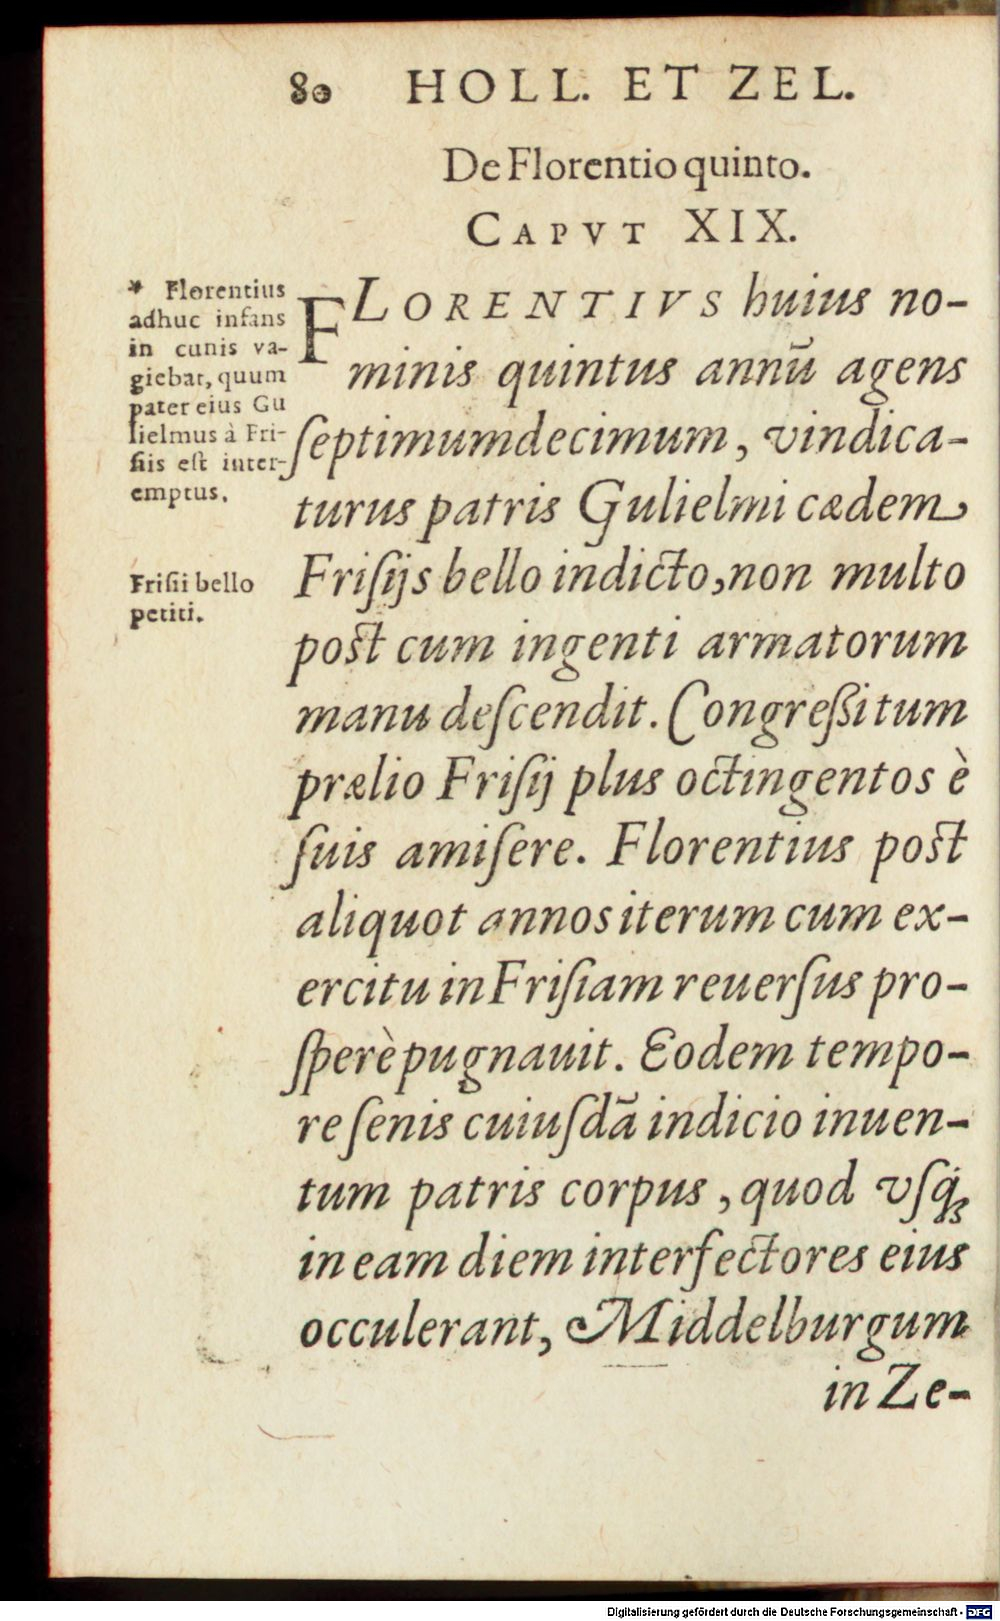 80 HOLL. ET ZEL.
De Florentio quinto.
CAPVT XIX.
* Florentius
adhuc infans
in cunis va-
giebat, quum
pater eius Gu
lielmus à Fri-
siis est inter-
emptus.
Frisii bello
petiti.
FLORENTIVS huius no-
minis quintus annũ agens
ſeptimumdecimum, vindica-
turus patris Gulielmi cædem
Friſijs bello indicto, non multo
post cum ingenti armatorum
manu deſcendit. Congreßi tum
prælio Friſij plus octingentos è
ſuis amiſere. Florentius post
aliquot annos iterum cum ex-
ercitu in Friſiam reuerſus pro-
ſperè pugnauit. Eodem tempo-
re ſenis cuiuſdã indicio inuen-
tum patris corpus, quod vſq́;
in eam diem interfectores eius
occulerant, Middelburgum
in Ze-
Digitalisierung gefördert durch die Deutsche Forschungsgemeinschaft - DFG